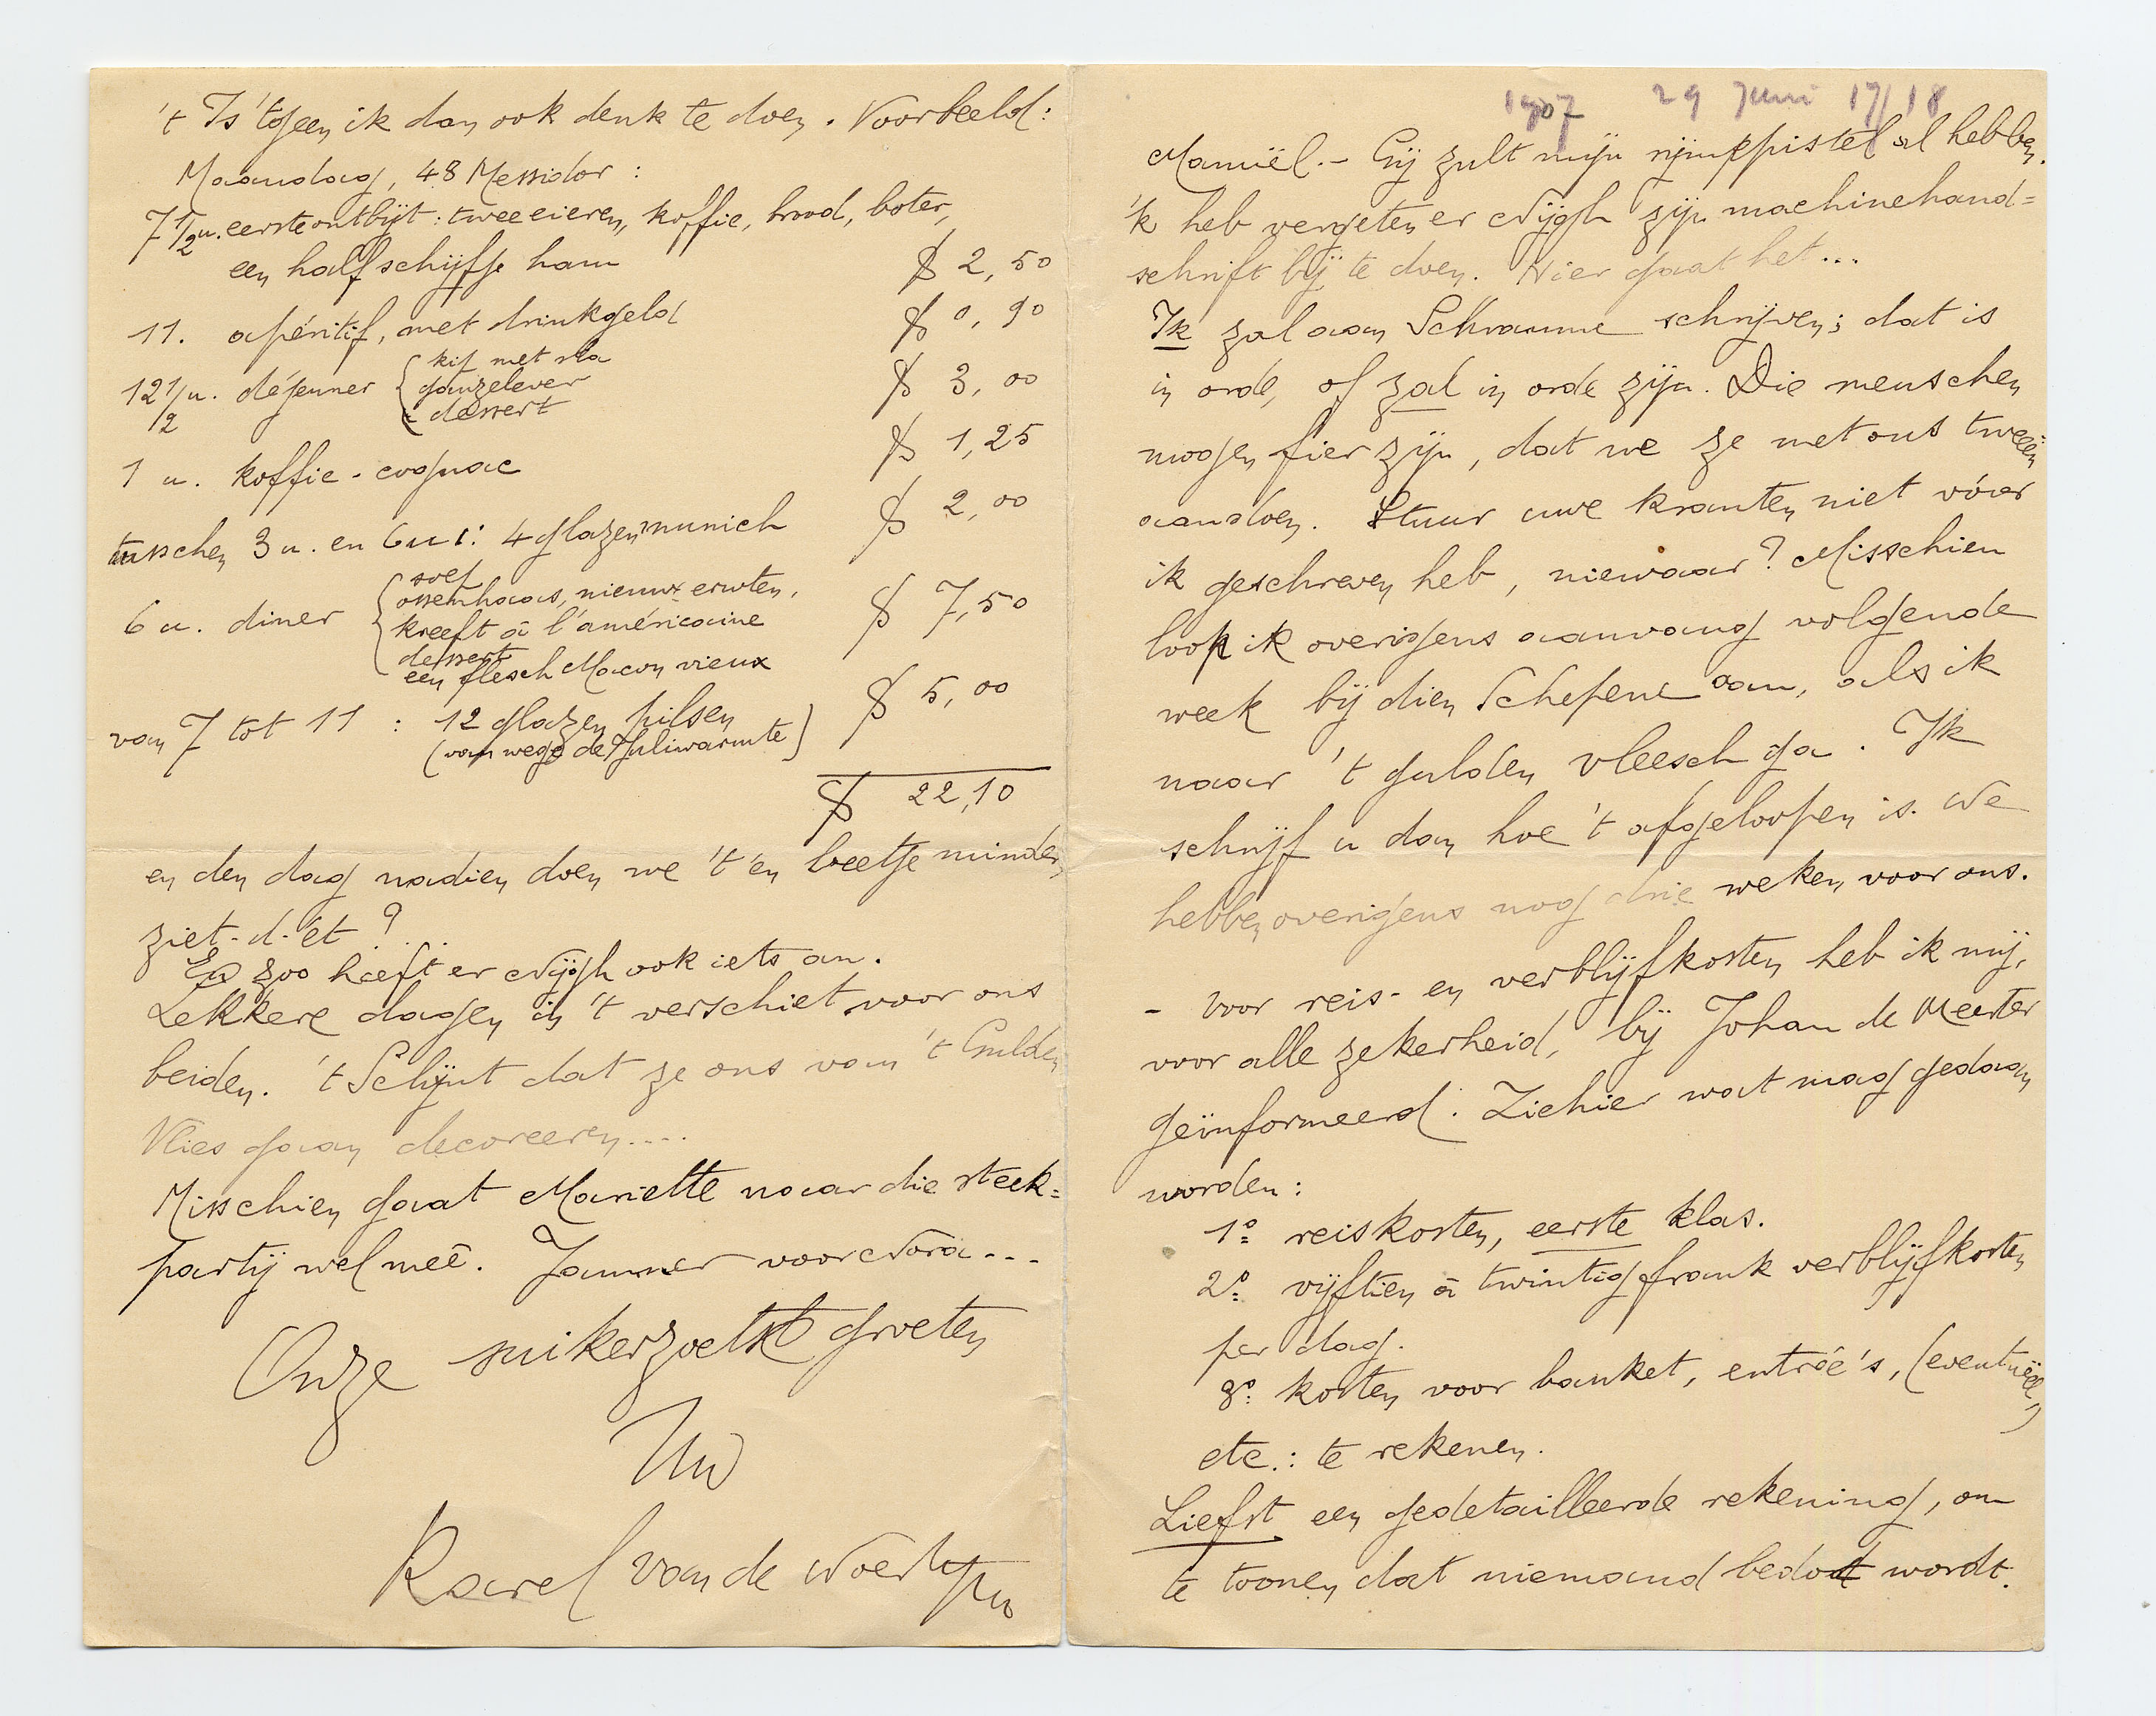 1907 29 Juni 17/18
Manuël. - Gij zult mijn rijmeppistel al hebben.
'k heb vergeten er Nijgh zijn machinehand=
schrift bij te doen. Hier gaat het...
Ik zal aan Schramme schrijven; dat is
in orde, of zal in orde zijn. Die menschen
mogen fier zijn, dat we ze met ons tweeën
aandoen. Stuur uwe kranten niet vóaer
ik geschreven heb, niewaar? Misschien
loop ik overigens aanvang volgende
week bij dien Schepene aan, als ik
naar 't gulden vleesch ga. Ik
schrijf u dan hoe 't afgeloopen is. We
hebben overigens nog drie weken voor ons.
- Voor reis- en verblijfkosten heb ik mij,
voor alle zekerheid, bij Johan de Meester
geïnformeerd. Ziehier wat mag gedaan
worden:
1º reiskosten, eerste klas.
2º vijftien à twintig frank verblijfkosten
per dag.
3º kosten voor banket, entrée's, (eventuëel)
etc.: te rekenen.
Liefst een gedetailleerde rekening, om
te toonen dat niemand bedot wordt.
't Is 'tgeen ik dan ook denk te doen. Voorbeeld:
Maandag, 48 Messidor:
7 1/2 u. eerste ontbijt: twee eieren, koffie, brood, boter,
een half schijfje ham $ 2,50
11. apéritif, met drinkgeld $ 0,90
12 1/2 u. déjeuner { kip met sla
ganzelever
dessert $ 3,00
1 u. koffie-cognac $ 1,25
tusschen 3 u. en 6 u: 4 glazen munich $ 2,00
6 u. diner { soep
ossenhaas, nieuwe erwten,
kreeft à l'américaine
dessert
een flesch Macon vieux $ 7,50
van 7 tot 11: 12 glazen pilsen
(van wege de Juliwarmte) $ 5,00
$ 22,10
en den dag nadien doen we 't 'en beetje minder,
ziet-d-'et?...
En zoo heeft er Nijgh ook iets an.
Lekkere dagen in 't verschiet voor ons
beiden. 't Schijnt dat ze ons van 't Gulden
Vlies gaan decoreeren....
Misschien gaat Mariette naar die steek=
partij wel meê. Jammer voor Nora...
Onze suikerzoetste groeten
Uw
Karel van de Woestijne